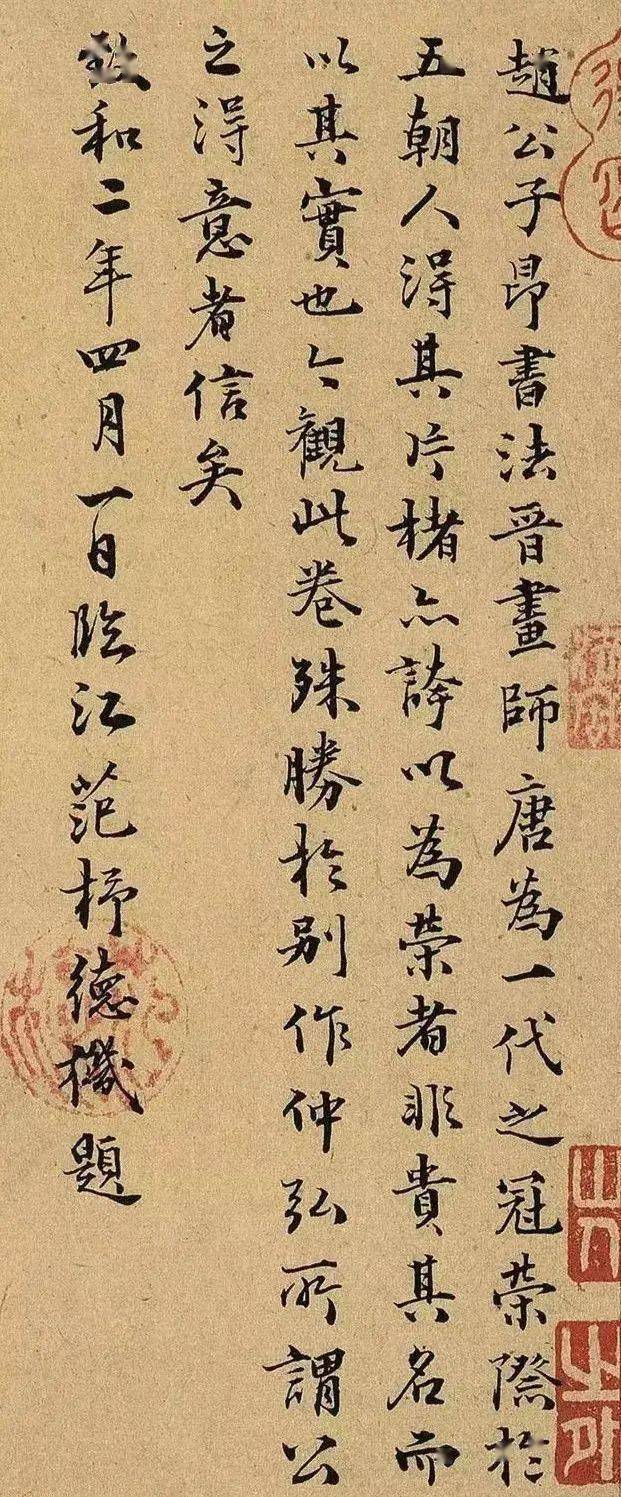 趙公子昂書法晉畫師唐為一代之冠榮際於
五朝人得其片楮亦誇以為榮者非貴其名而
以其實也今觀此卷殊勝於別作仲弘所謂公
之得意者信矣
致和二年四月一日臨江范梈德機題